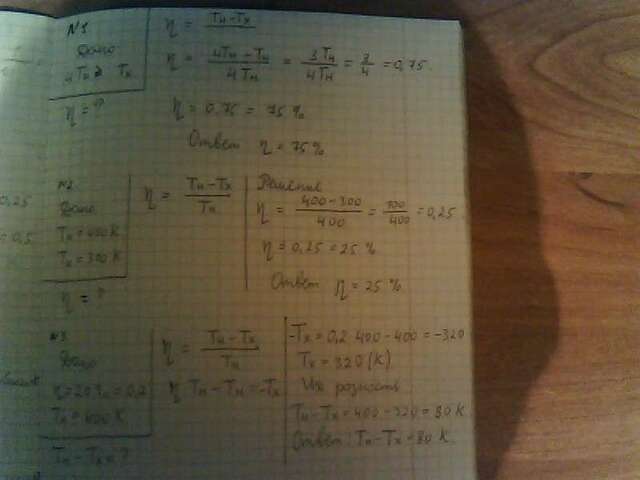 №1
Дано
η = ?
η = Tн-Tх
η = 4Tн - Tн / 4Tн = 3Tн / 4Tн = 3/4 = 0,75
η = 0,75 = 75 %
Ответ η = 75 %
0,25
= 0,5
№2
Дано
Tн = 400 K
Tх = 300 K
η = ?
η = Tн - Tх / Tн
Решение
η = 400 - 300 / 400 = 100/400 = 0,25
η = 0,25 = 25 %
Ответ η = 25 %
№3
Дано
η = 20 % = 0,2
Tн = 400 K
Tн - Tх = ?
η = Tн - Tх / Tн
η Tн - Tн = -Tх
-Tх = 0,2 400 - 400 = -320
Tх = 320 (K)
Их разность
Tн - Tх = 400 - 320 = 80 K
Ответ: Tн - Tх = 80 K